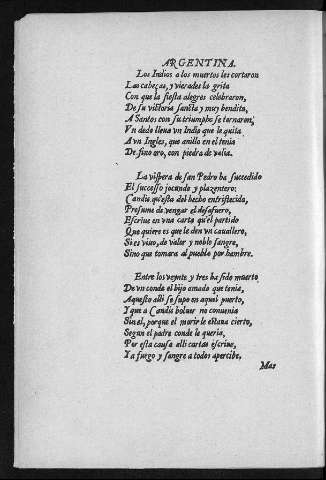 ARGENTINA.
Los Indios a los muertos les cortaron
Las cabeças, y vierades la grita
Con que la fiesta alegres celebraron,
De su victoria sancta y muy bendita,
A Santos con su triumpho se tornaron,
Vn dedo lleua vn Indio que le quita
A vn Ingles, que anillo en el tenia
De fino oro, con piedra de valia.
La vispera de san Pedro ha sucedido
El successo jocundo y plazentero:
Candis qu'esta del hecho entristecido,
Presume de vengar el desafuero,
Escriue en vna carta qu'el partido
Que quiere es que le den vn cauallero,
Si es viuo, de valor y noble sangre,
Sino que tomara al pueblo por hambre.
Entre los veynte y tres ha sido muerto
De vn conde el hijo amado que tenia,
Aquesto alli se supo en aquel puerto,
Y que a Candis boluer no conuenia
Sin el, porque el morir le estaua cierto,
Segun el padre conde le queria,
Por esta causa alli cartas escriue,
Ya fuego y sangre a todos apercibe,
Mas